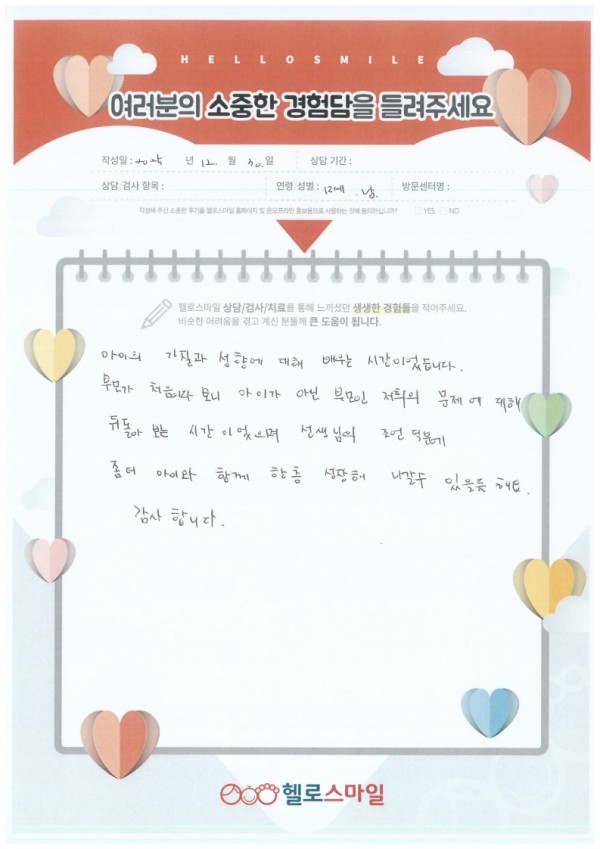 HELLOSMILE
여러분의 소중한 경험담을 들려주세요
작성일 : 2025 년 12. 월 30. 일 상담 기간 :
상담/검사 항목 : 연령/성별 : 12세 남. 방문센터명 :
작성해 주신 소중한 후기를 헬로스마일 홈페이지 및 온오프라인 홍보용으로 사용하는 것에 동의하십니까? □ YES □ NO
헬로스마일 상담/검사/치료를 통해 느끼셨던 생생한 경험들을 적어주세요.
비슷한 어려움을 겪고 계신 분들께 큰 도움이 됩니다.
아이의 기질과 성향에 대해 배우는 시간이었습니다.
부모가 처음이다 보니 아이가 아닌 부모인 저희의 문제에 대해
뒤돌아 보는 시간이었으며 선생님의 조언 덕분에
좀더 아이와 함께 한층 성장해 나갈수 있을듯 해요.
감사 합니다.
헬로스마일